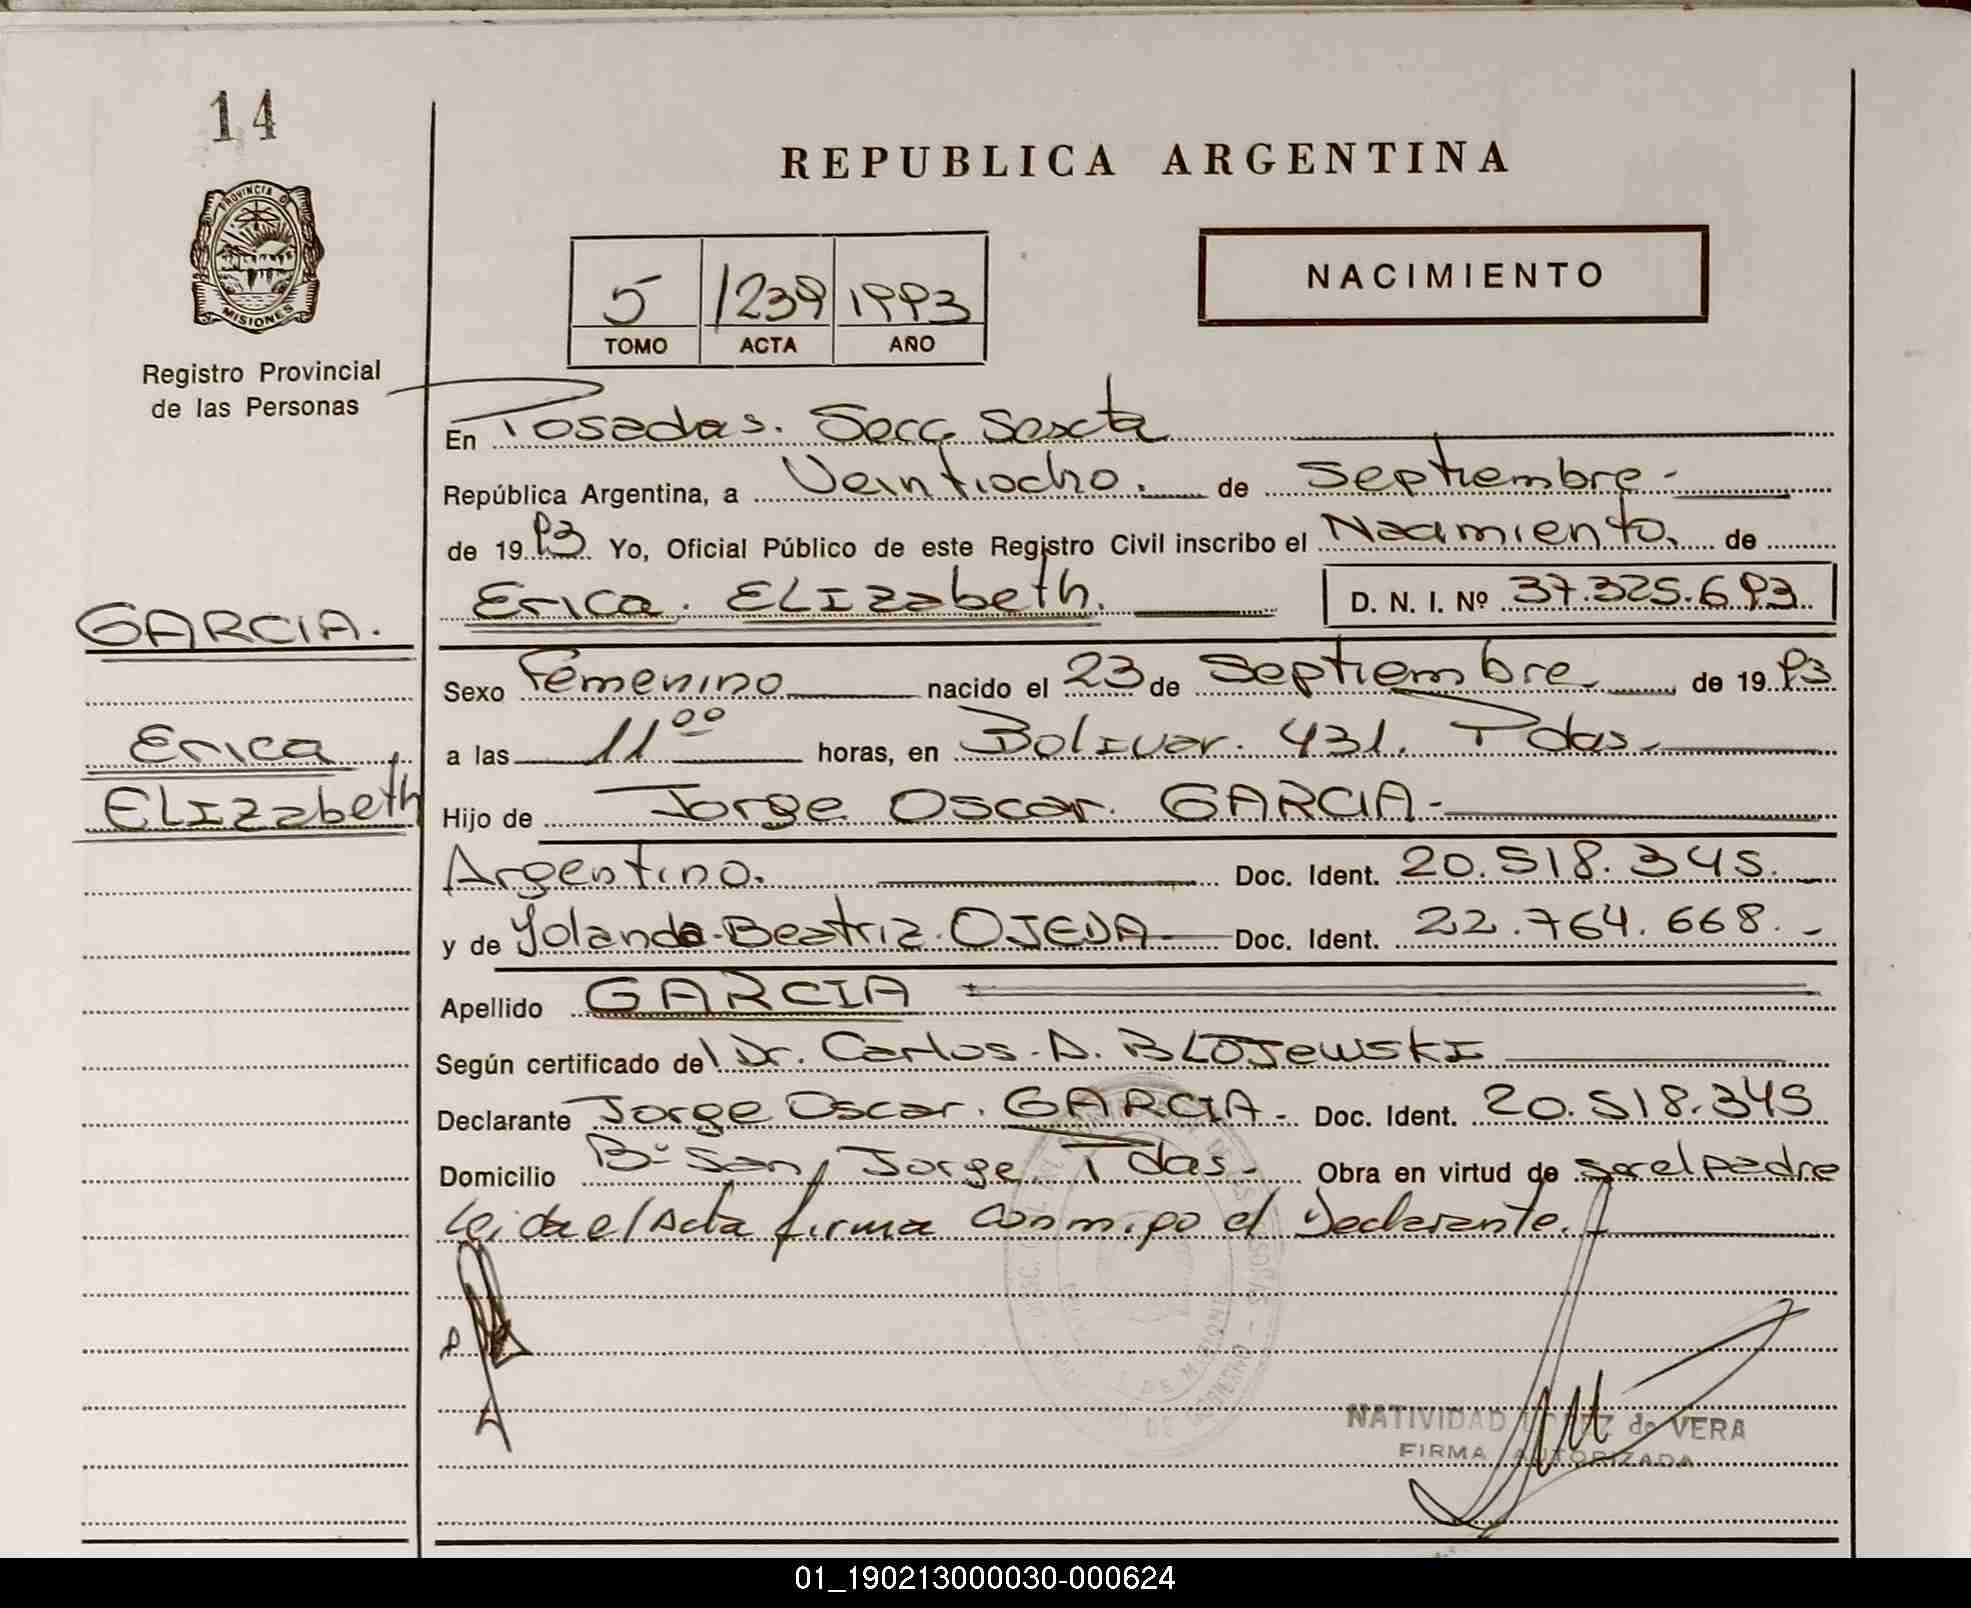 14
REPUBLICA ARGENTINA
PROVINCIA DE
MISIONES
Registro Provincial
de las Personas
5 1239 1993
TOMO ACTA AÑO
NACIMIENTO
En Posadas. Secc Sexta
República Argentina, a Veintiocho. de Septiembre
de 1993 Yo, Oficial Público de este Registro Civil inscribo el Nacimiento. de
Erica. ELIzabeth. D. N. I. Nº 37.325.693
GARCIA.
Sexo Femenino nacido el 23 de Septiembre. de 1993
Erica
a las 11 00 horas, en Bolivar. 431. Pdas.
ELIzabeth
Hijo de Jorge Oscar. GARCIA-
Argentino. Doc. Ident. 20.518.345.
y de Yolanda-Beatriz. OJEDA Doc. Ident. 22.764.668.-
Apellido GARCIA
Según certificado del Dr. Carlos. A. BLOJewskI
Declarante Jorge Oscar. GARCIA- Doc. Ident. 20.518.345
Domicilio Bº San Jorge. Pdas. Obra en virtud de ser el padre
Leida el Acta firma conmigo el Declarante.
NATIVIDAD LOPEZ de VERA
FIRMA AUTORIZADA
01_190213000030-000624